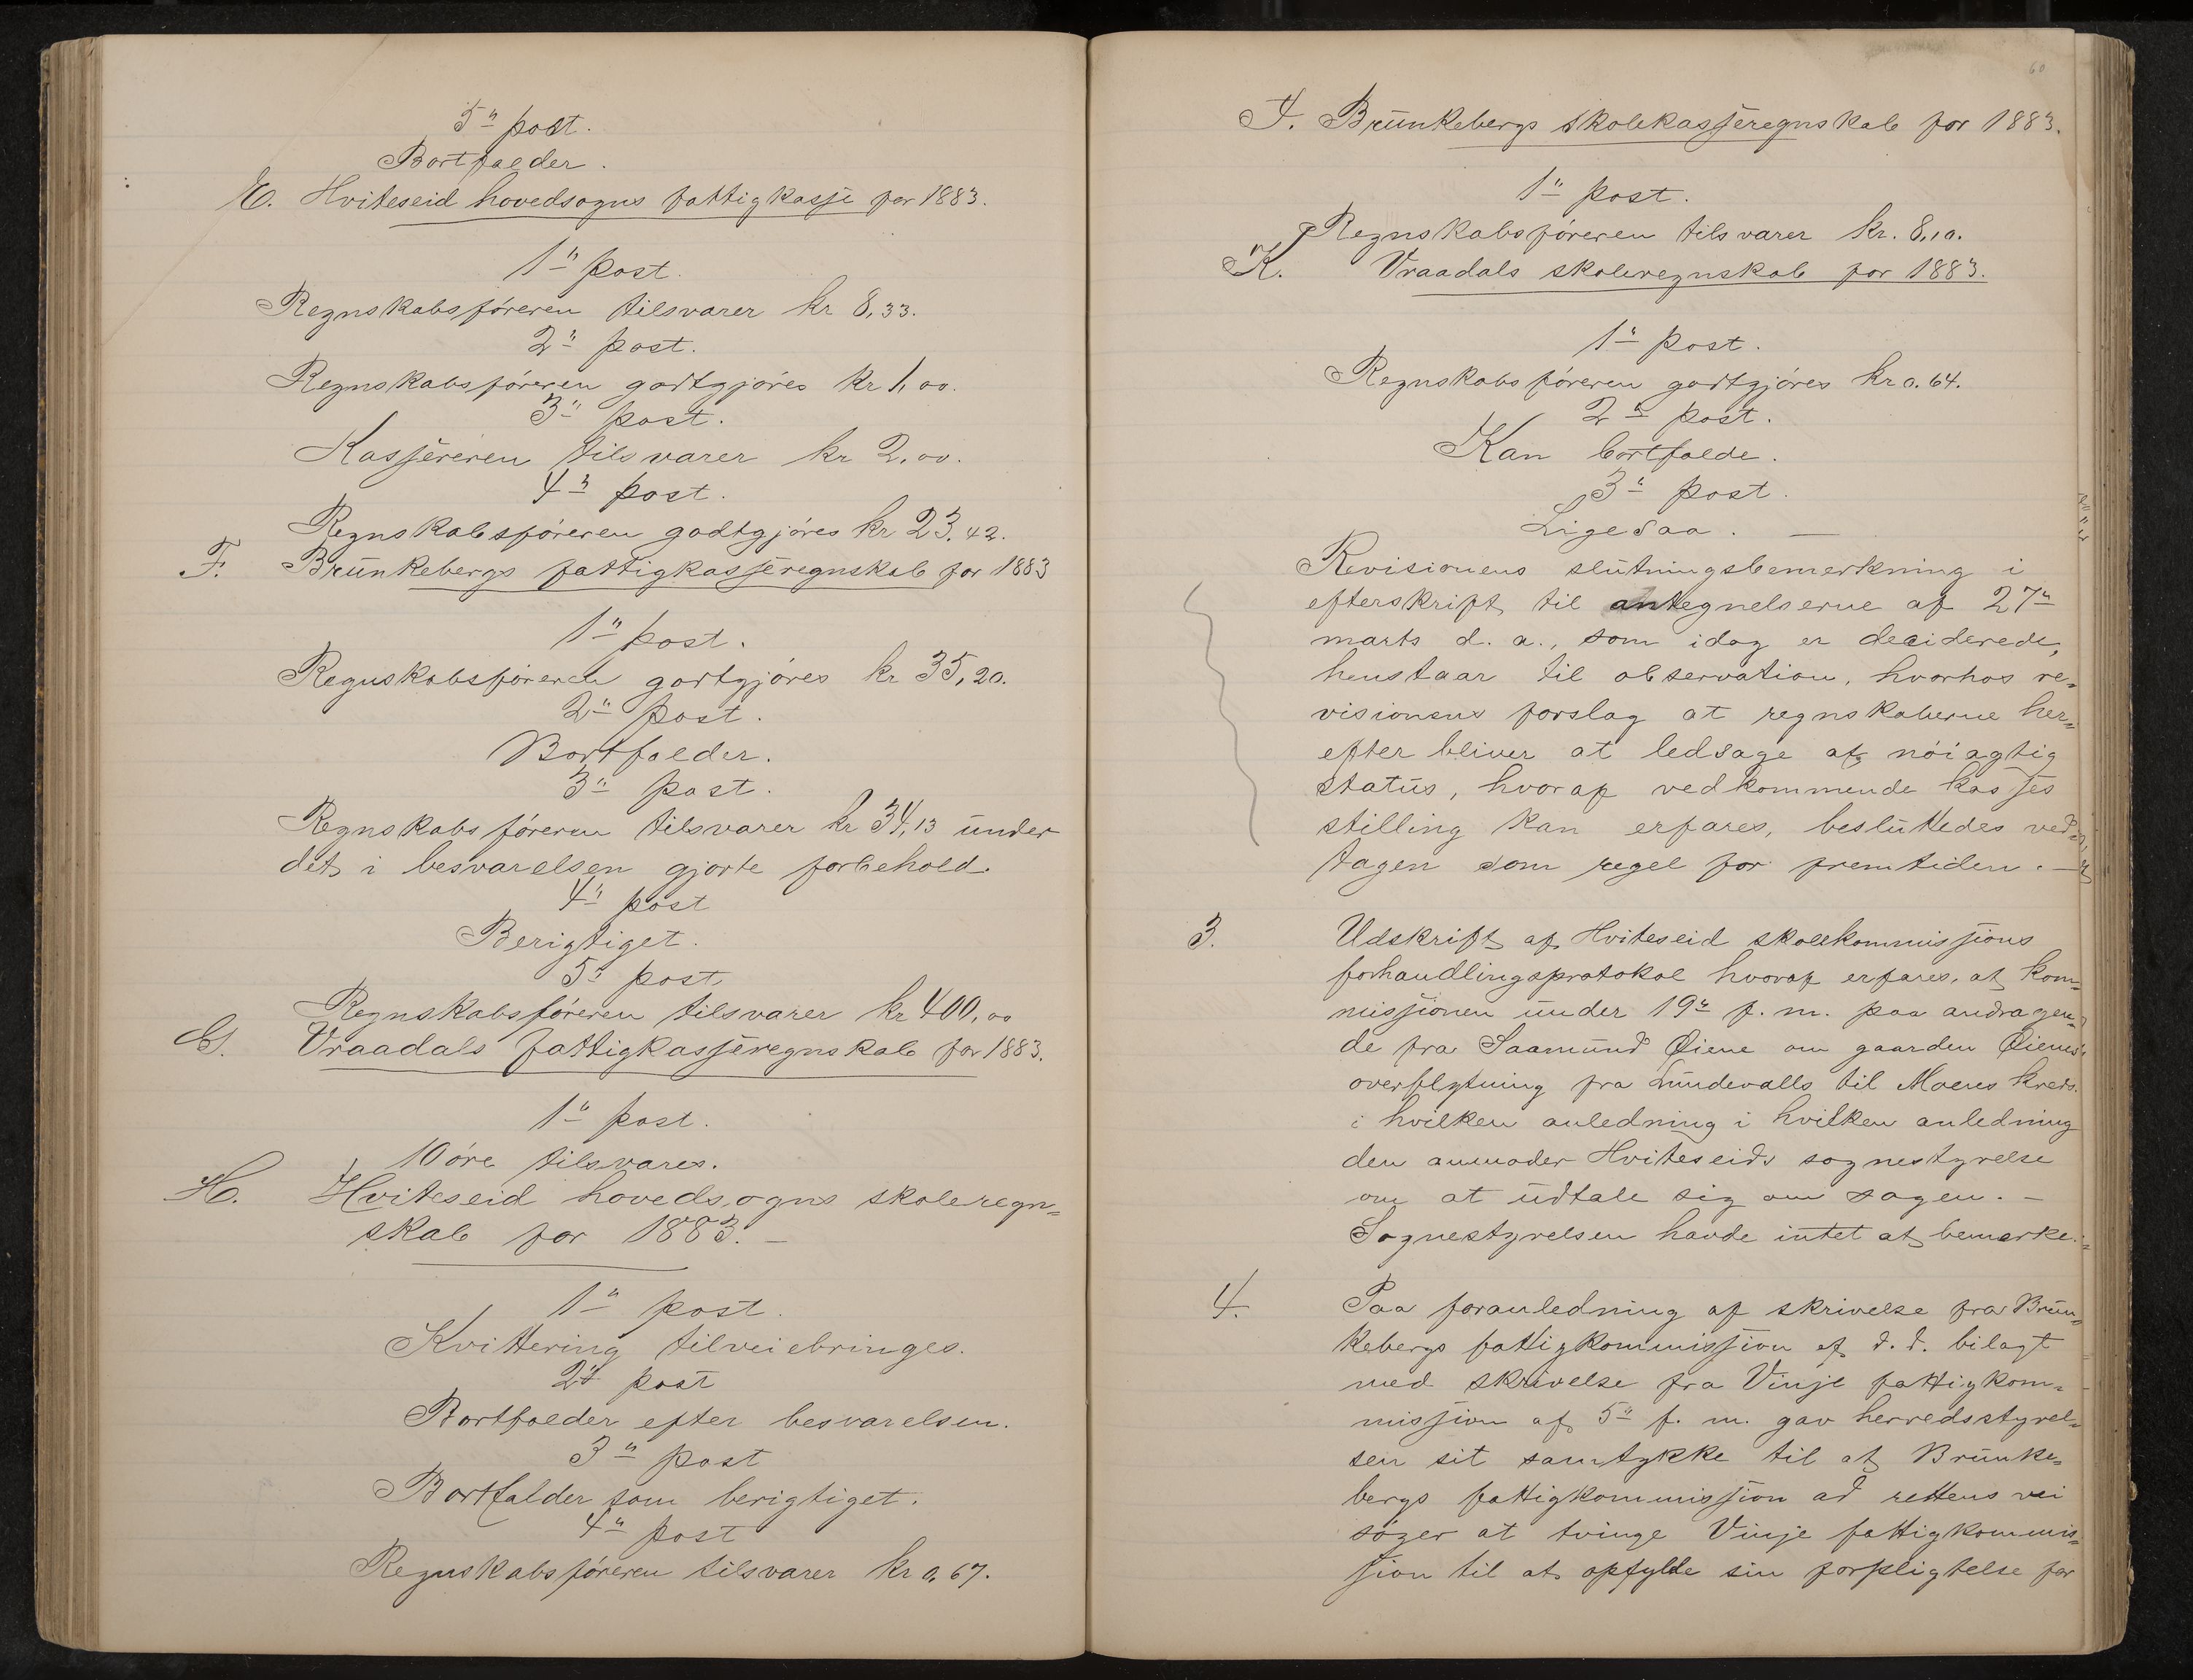 5" post.
Bortfalder.
E. Hviteseid hovedsogns fattigkasse for 1883.
1" post.
Regnskabsføreren tilsvarer kr 8,33.
2" post.
Regnskabsføreren godtgjøres kr 1,00.
3" post.
Kassereren tilsvarer kr 2,00.
4" post.
Regnskabsføreren godtgjøres kr 23,42.
F. Brunkebergs fattigkasseregnskab for 1883
1" post.
Regnskabsføreren godtgjøres kr 35,20.
2" post.
Bortfalder.
3" post.
Regnskabsføreren tilsvarer kr 34,13 under
det i besvarelsen gjorte forbehold.
4" post
Berigtiget.
5" post.
Regnskabsføreren tilsvarer kr 400,00
G. Vraadals fattigkasseregnskab for 1883.
1" post.
10 øre tilsvares.
H. Hviteseid hovedsogns skoleregn=
skab for 1883. –
1" post.
Kvittering tilveiebringes.
2" post
Bortfalder efter besvarelsen.
3" post
Bortfalder som berigtiget.
4" post
Regnskabsføreren tilsvarer kr 0,67.
60
I. Brunkebergs skolekasseregnskab for 1883.
1" post.
Regnskabsføreren tilsvarer kr. 8,10.
K. Vraadals skoleregnskab for 1883.
1" post.
Regnskabsføreren godtgjøres kr 0.64.
2" post.
Kan bortfalde.
3" post.
Ligesaa. —
Revisionens slutningsbemerkning i
efterskrift til antegnelserne af 27"
marts d. a., som idag er deciderede,
henstaar til observation, hvorhos re=
visionens forslag at regnskaberne her=
efter bliver at ledsage af nøiagtig
status, hvoraf vedkommende kasses
stilling kan erfares, besluttedes ved=
tagen som regel for fremtiden. —
3. Udskrift af Hviteseid skolekommissions
forhandlingsprotokol hvoraf erfares, at kom=
missionen under 19" f. m. paa andragen=
de fra Saamund Øiene om gaarden Øienes
overflytning fra Lundevalls til Moenes kreds.
i hvilken anledning i hvilken anledning
den anmoder Hviteseids sognestyrelse
om at udtale sig om sagen. –
Sognestyrelsen havde intet at bemerke. –
4. Paa foranledning af skrivelse fra Brun=
kebergs fattigkommission af d. d. bilagt
med skrivelse fra Vinje fattigkom=
mission af 5" f. m. gav herredsstyrel=
sen sit samtykke til at Brunke=
bergs fattigkommission ad rettens vei
søger at tvinge Vinje fattigkommis=
sion til at opfylde sin forpligtelse for